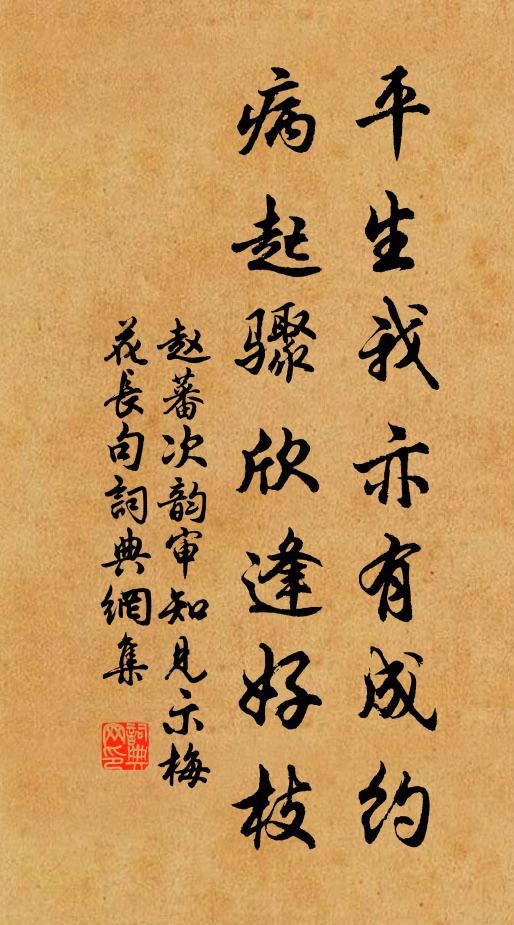 平生我亦有成约
病起骤欣逢好枝
赵蕃次韵审知见示梅
花長句詞典網集
詞典
网印